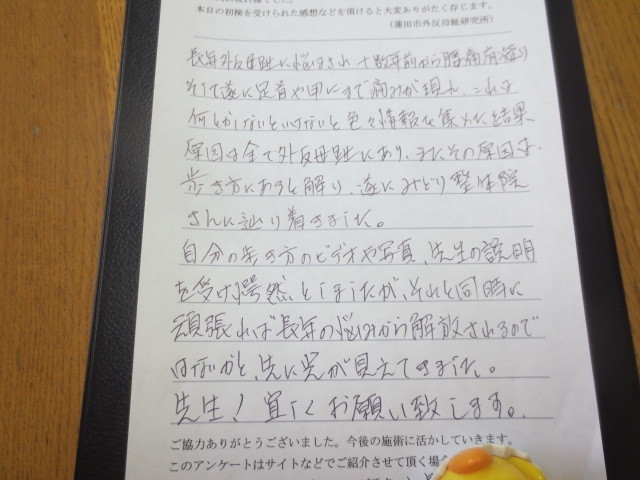 本日の初検を受けられた感想などを頂けると大変ありがたく存じます。
(蓮田市外反母趾研究所)
長年外反母趾に悩まされ十数年前から腰痛肩凝り
そして遂に足首や甲にまで痛みが現れ、これは
何とかしないといけないと色々情報を集めた結果
原因は全て外反母趾にあり、またその原因は、
歩き方にあると解り、遂にみどり整体院
さんに辿り着きました。
自分の歩き方のビデオや写真、先生の説明
を受け愕然としましたが、それと同時に
頑張れば長年の悩みから解放されるので
はないかと、先に光が見えてきました。
先生!宜しくお願い致します。
ご協力ありがとうございました。今後の施術に活かしていきます。
このアンケートはサイトなどでご紹介させて頂く場合